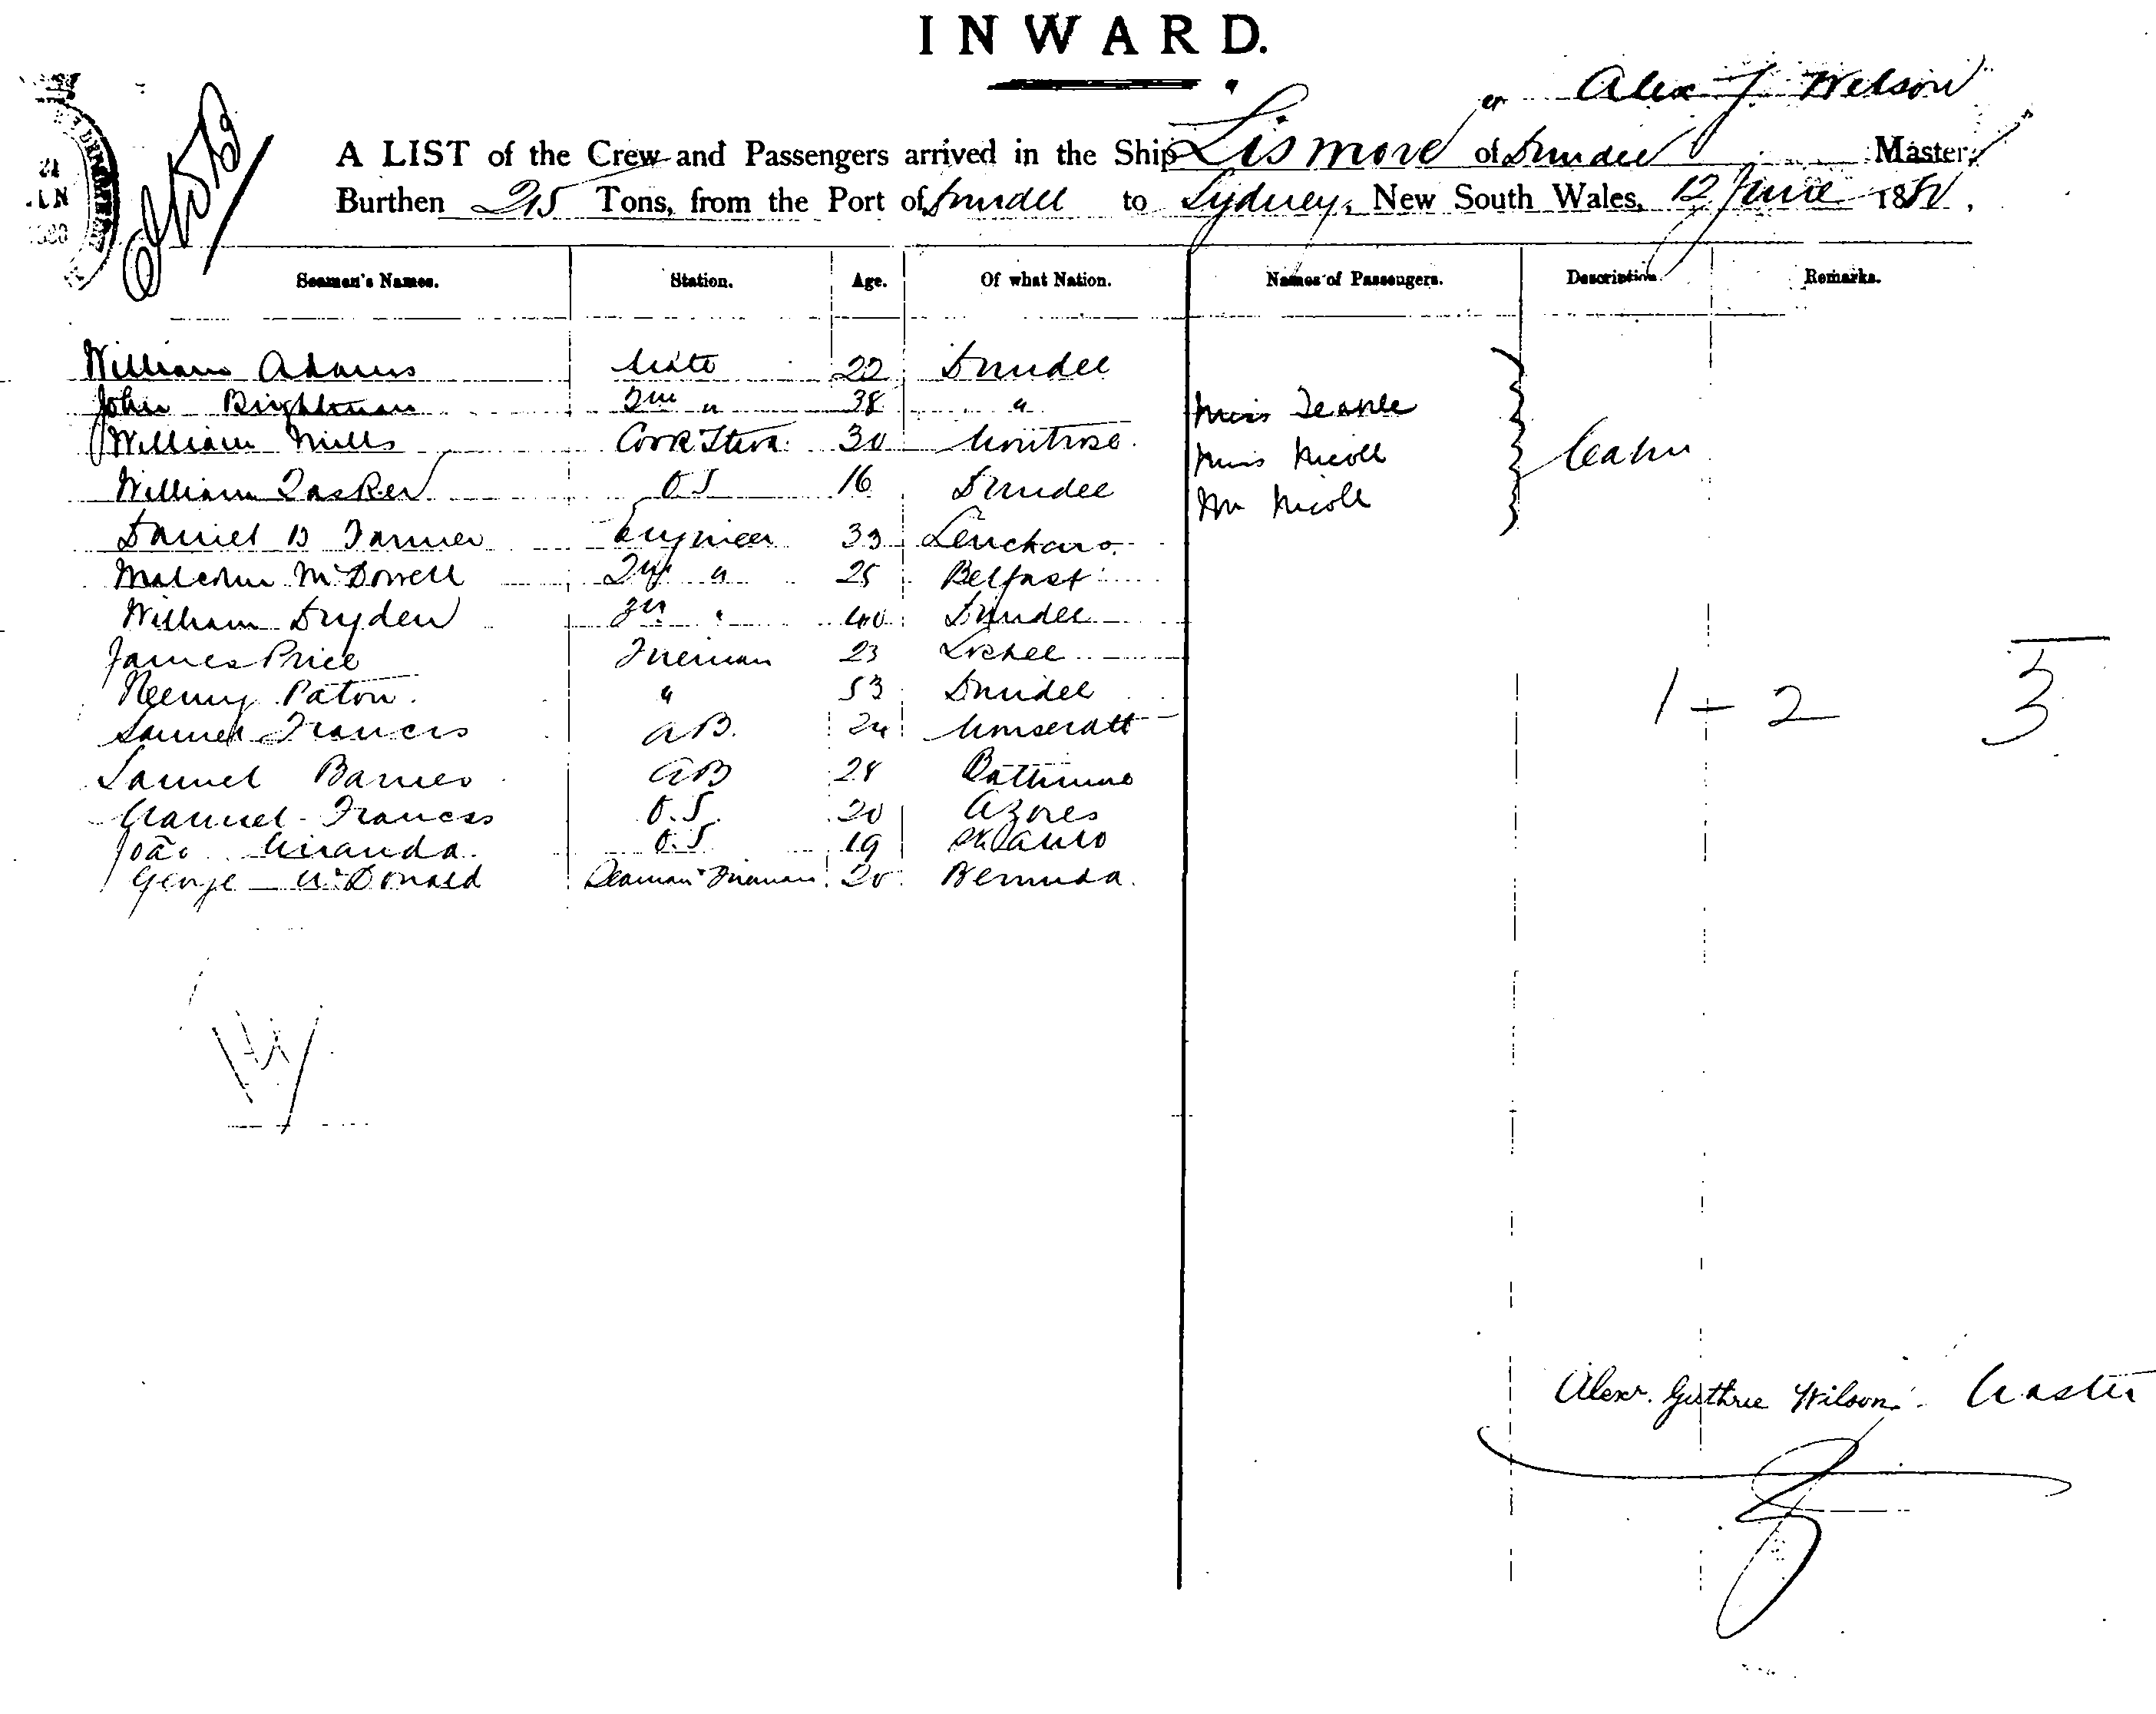 INWARD.
Alex J Wilson
A LIST of the Crew and Passengers arrived in the Ship Lismore of Dundee Master,
Burthen 215 Tons, from the Port of Dundee to Sydney, New South Wales, 12 June 188
Seamen's Names. Station. Age. Of what Nation. Names of Passengers. Description. Remarks.
William Adams Mate 22 Dundee
John Brightman 2nd " 38 " Miss Teasdle
William Mills Cook & Stewd 30 Montrose Miss Nicoll Cabin
William Tasker O.S 16 Dundee Mr Nicoll
Daniel B Farmer Engineer 33 Leuchars
Malcolm McDowell 2nd " 25 Belfast
William Dryden 3rd " 40 Dundee
James Price Fireman 23 Lochee
Henry Paton " 53 Dundee 1 - 2 3
Samuel Francis A.B. 24 Monseratt
Samuel Barnes AB 28 Baltimore
Manuel Francis O.S. 20 Azores
João Miranda O.S 19
George McDonald Seaman & Fireman 20 Bermuda
14
Alexr. Guthrie Wilson. Master